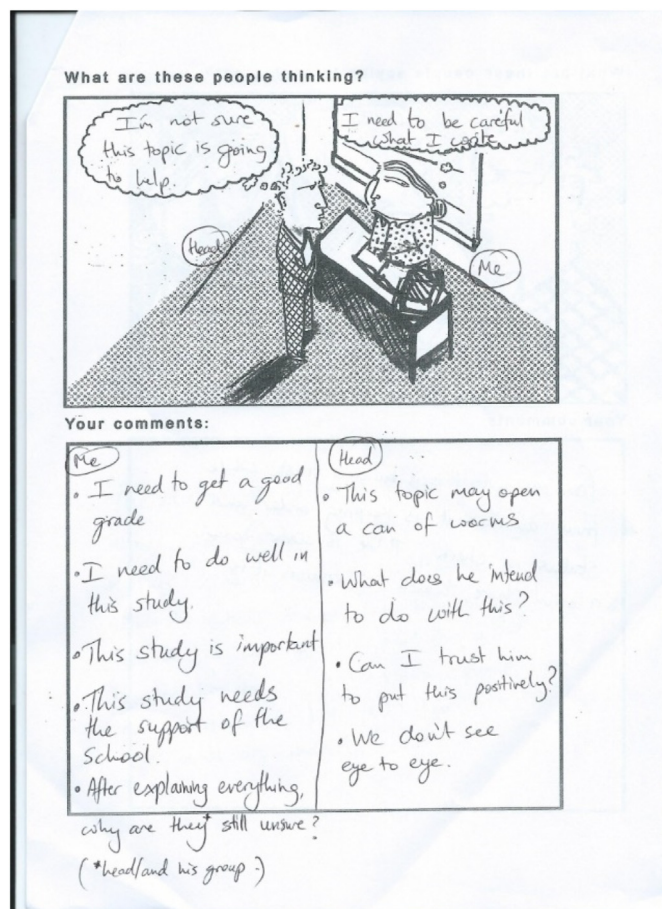 What are these people thinking?
I'm not sure
this topic is going
to help.
I need to be careful
what I write
Head
Me
Your comments:
Me
• I need to get a good
grade
• I need to do well in
this study.
• This study is important
• This study needs
the support of the
School.
• After explaining everything,
why are they* still unsure?
(*head/and his group.)
Head
• This topic may open
a can of worms
• What does he intend
to do with this?
• Can I trust him
to put this positively?
• We don't see
eye to eye.